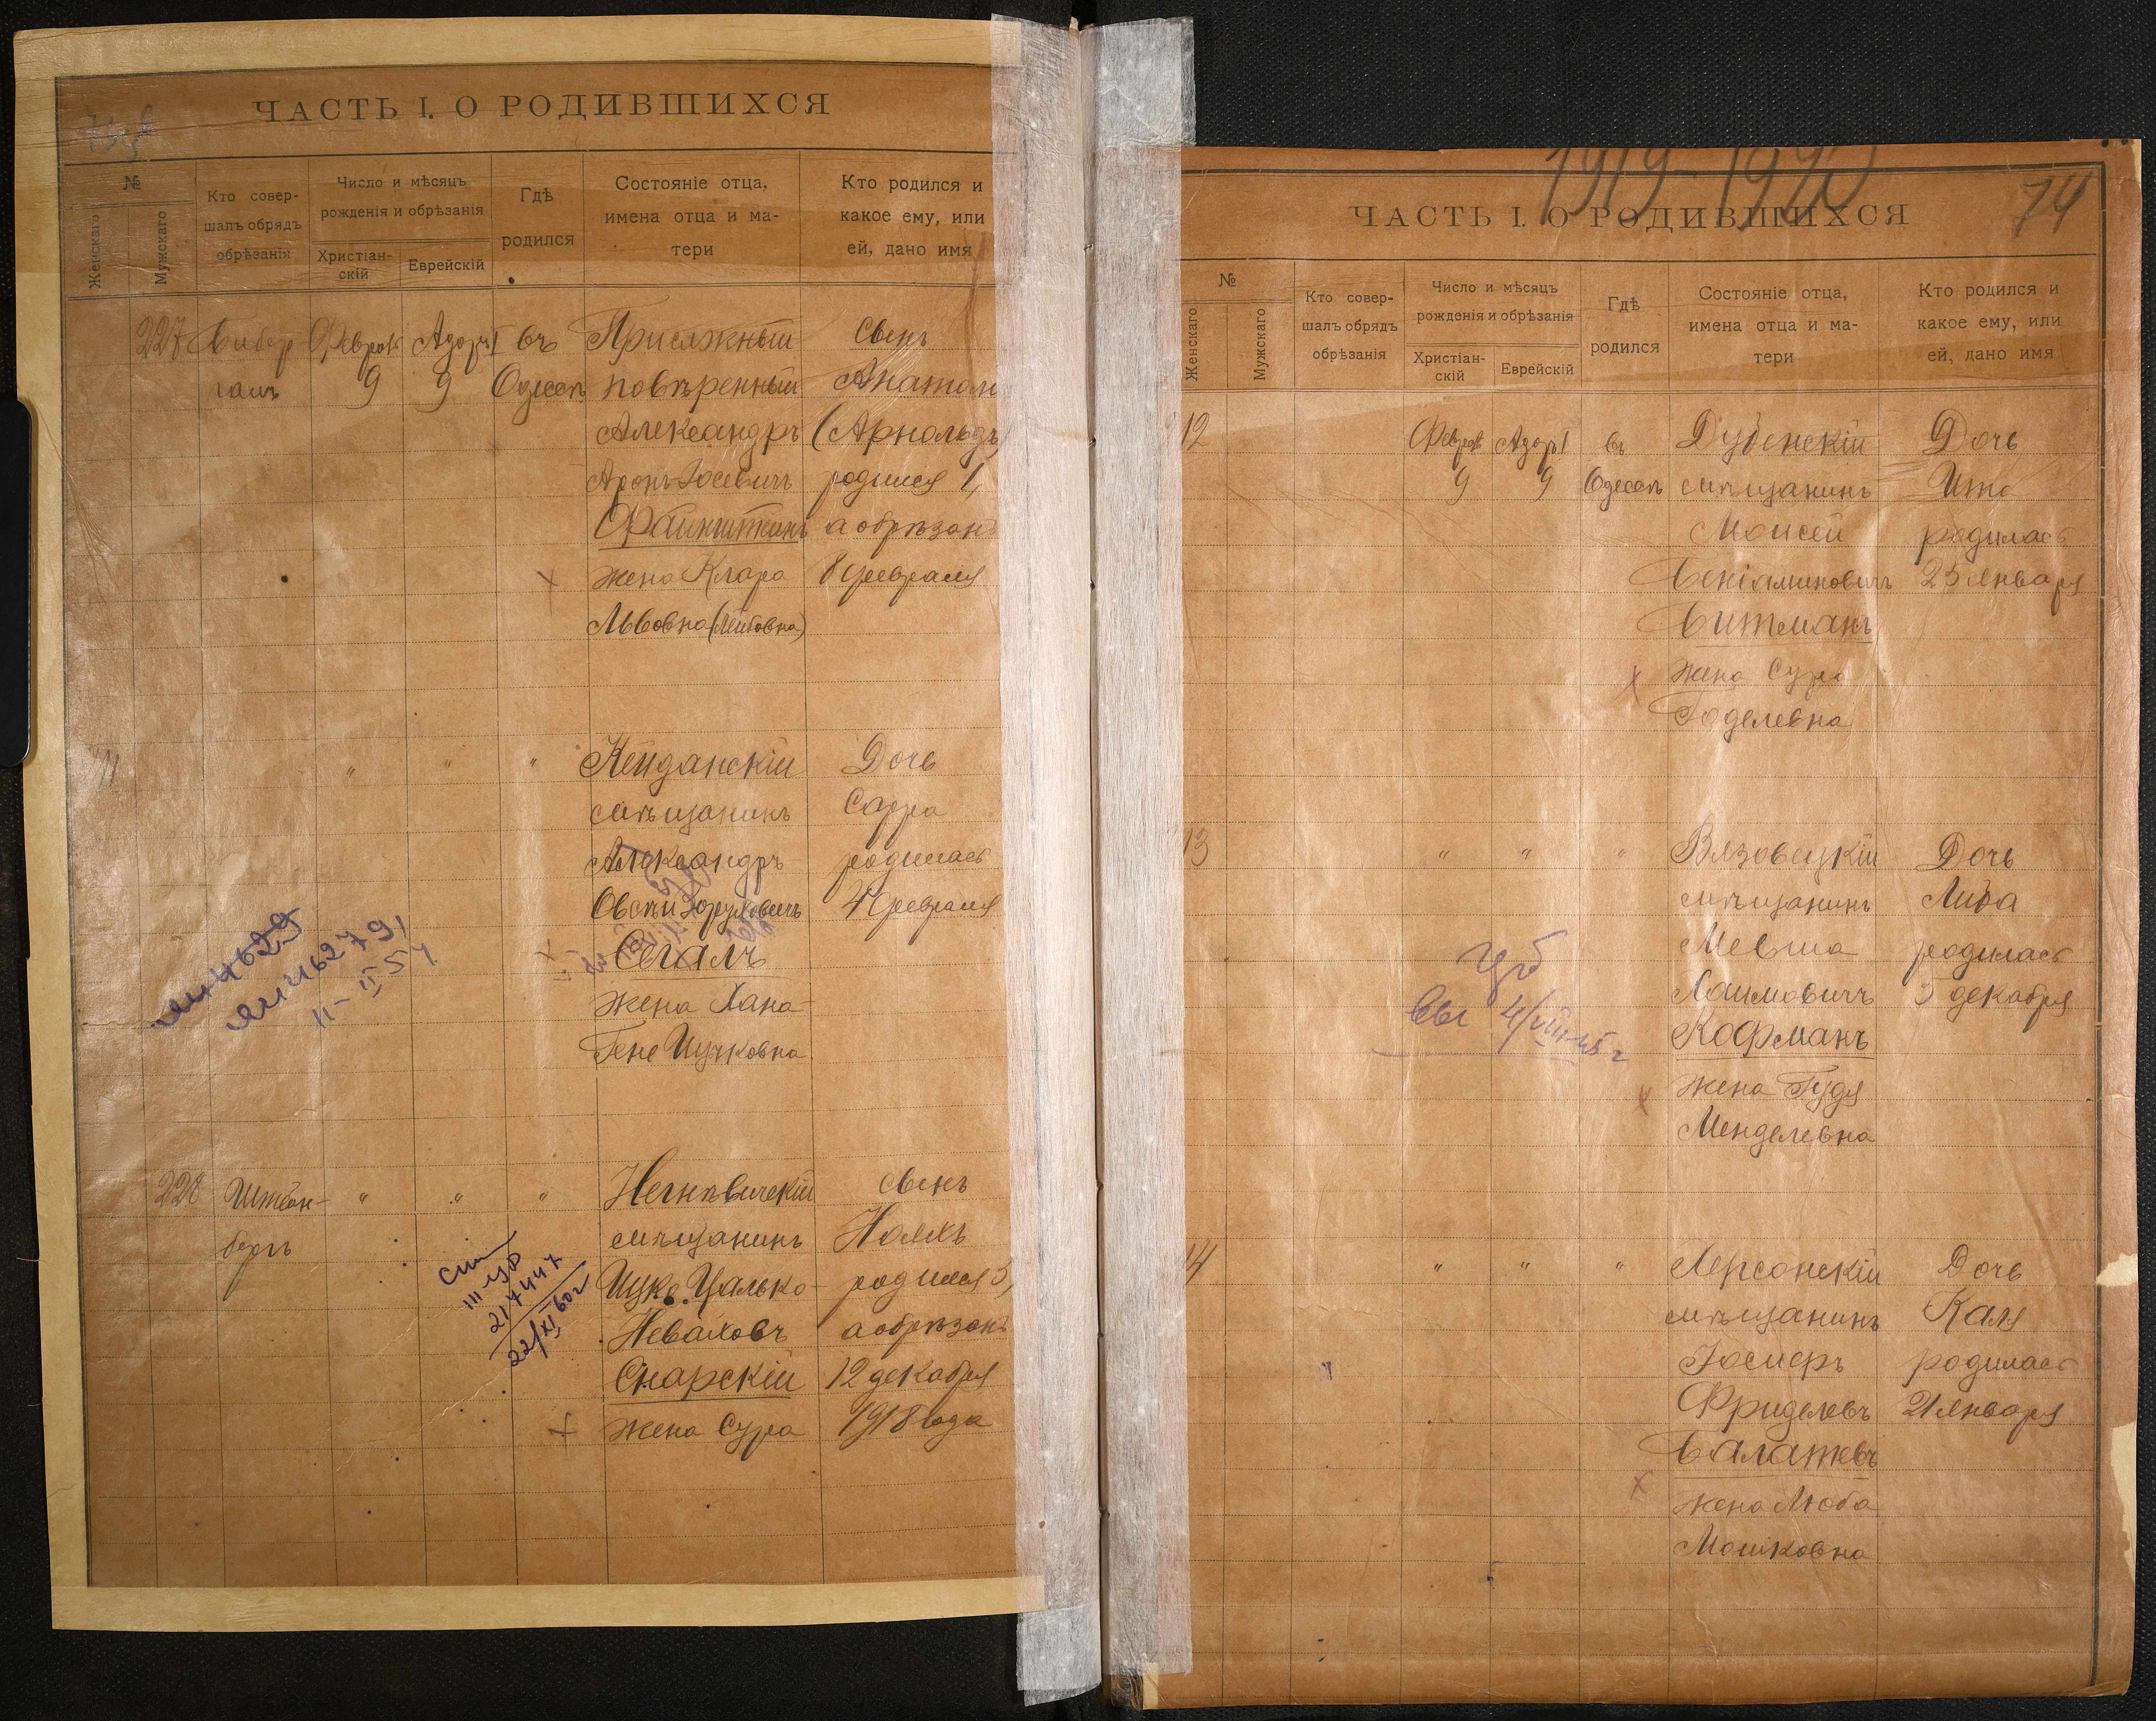 ЧАСТЬ I. О РОДИВШИХСЯ
№
Женскаго
Мужскаго
Кто совер-
шалъ обрядъ
обрѣзанія
Число и мѣсяцъ
рожденія и обрѣзанія
Христіан-
скій
Еврейскій
Гдѣ
родился
Состояніе отца,
имена отца и ма-
тери
Кто родился и
какое ему, или
ей, дано имя
227
Февраль
9
Адаръ I
9
въ
Одессѣ
Присяжный
повѣренный
Александръ
Аронъ-Іосевичъ
Файнштейнъ
жена Клара
Львовна (Лейбовна)
Сынъ
Анатолій
(Арнольдъ)
родился 1,
а обрѣзанъ
8 февраля
11
" " "
Кейданскій
мѣщанинъ
Александръ
Сегалъ
жена Хана-
Гене Ицковна
Дочь
Сарра
родилась
4 февраля
11-II-54
228
Штейн-
бергъ
" " "
мѣщанинъ
Ицко Цалько-
Неваховъ
Снарскій
жена Сура
Сынъ
родился 5,
а обрѣзанъ
12 декабря
1918 года
217447
22/XI 60г
1919-1920
74
ЧАСТЬ I. О РОДИВШИХСЯ
№
Женскаго
Мужскаго
Кто совер-
шалъ обрядъ
обрѣзанія
Число и мѣсяцъ
рожденія и обрѣзанія
Христіан-
скій
Еврейскій
Гдѣ
родился
Состояніе отца,
имена отца и ма-
тери
Кто родился и
какое ему, или
ей, дано имя
12
Февраль
9
Адаръ I
9
въ
Одессѣ
Дубенскій
мѣщанинъ
Моисей
Веніаминовичъ
Витманъ
жена Сура
Годелевна
Дочь
Ита
родилась
25 января
13
" " "
Вязовецкій
мѣщанинъ
Мевша
Хаимовичъ
Кофманъ
жена Гудя
Менделевна
Дочь
Либа
родилась
5 декабря
4/VIII-45 г
14
" " "
Херсонскій
мѣщанинъ
Іосифъ
Фриделевъ
жена Люба
Мошковна
Дочь
Каля
родилась
21 января